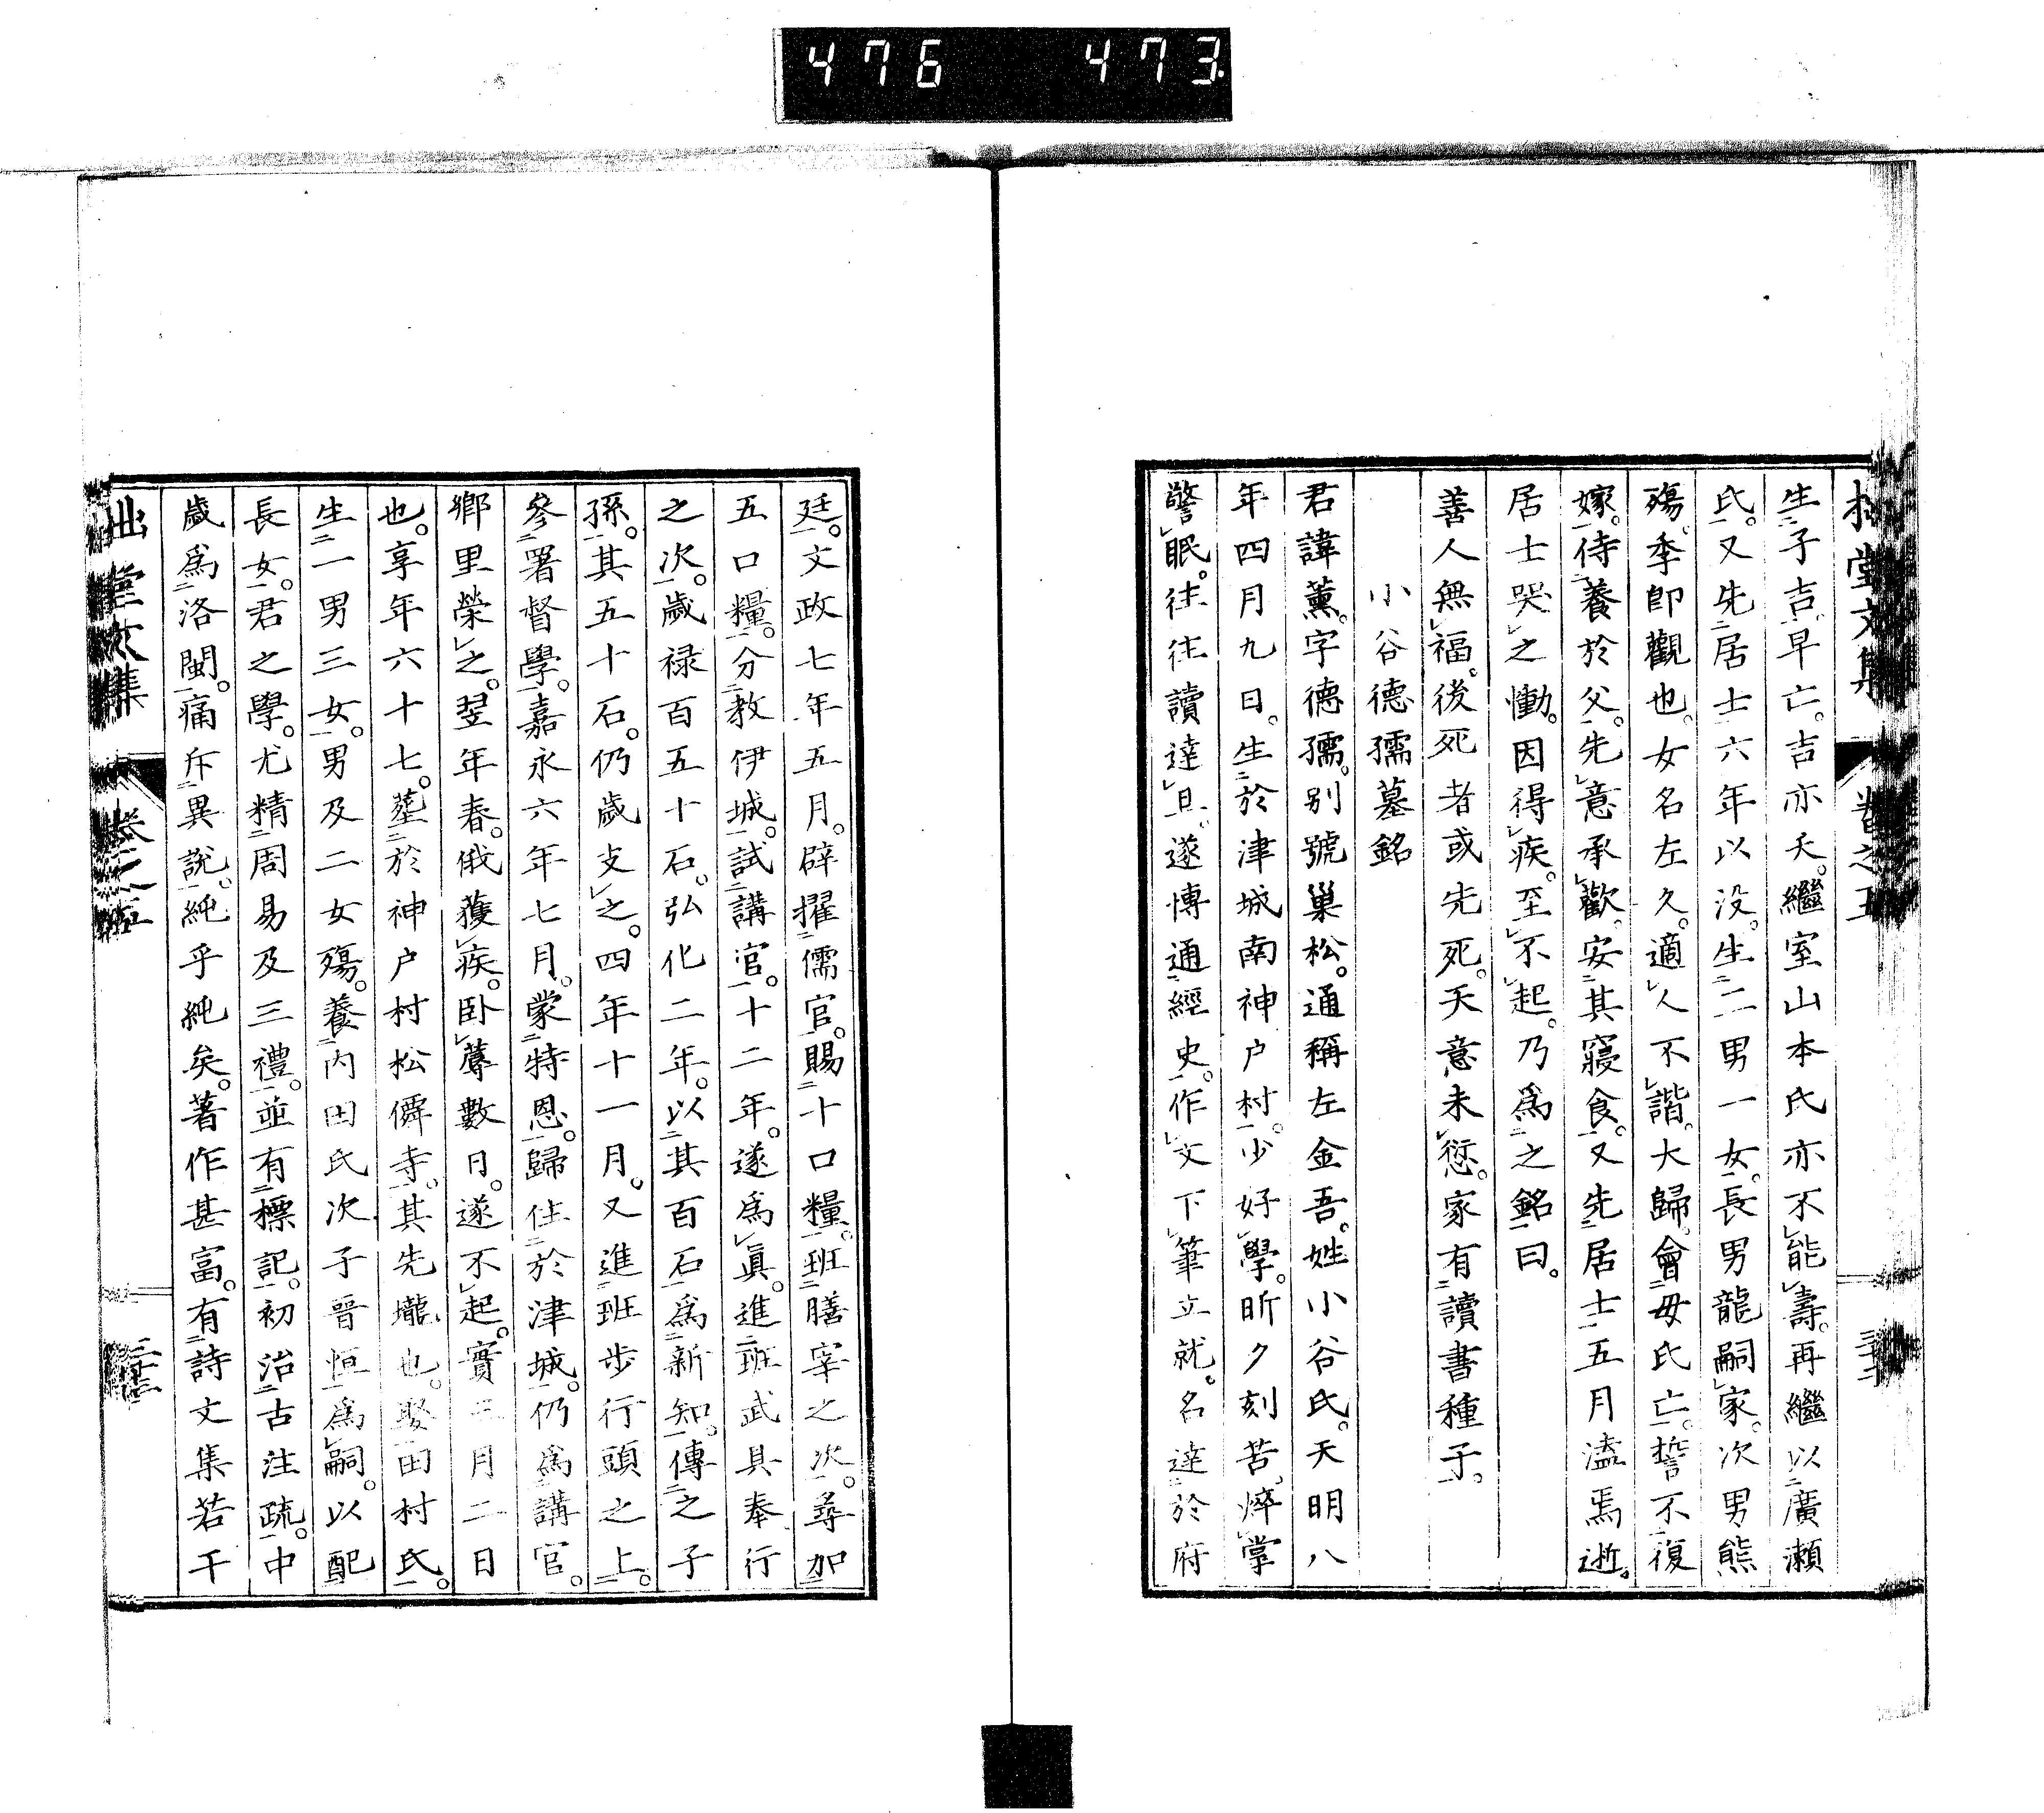 476 473
生子吉。早亡。吉亦夭。繼室山本氏亦不能壽。再繼以廣瀨
氏。又先居士六年以沒。生二男一女。長男龍嗣家。次男熊
殤。季卽觀也。女名左久。適人不諧。大歸。會母氏亡。誓不復
嫁。侍養於父。先意承歡。安其寢食。又先居士五月溘焉逝。
居士哭之慟。因得疾。至不起。乃爲之銘曰。
善人無福。後死者或先死。天意未愆。家有讀書種子。
小谷德孺墓銘
君諱薰。字德孺。別號巢松。通稱左金吾。姓小谷氏。天明八
年四月九日。生於津城南神戶村。少好學。昕夕刻苦。焠掌
警眠。往往讀達旦。遂博通經史。作文下筆立就。名達於府
廷。文政七年五月。辟擢儒官。賜十口糧。班膳宰之次。尋加
五口糧。分教伊城。試講官。十二年。遂爲眞。進班武具奉行
之次。歲祿百五十石。弘化二年。以其百石爲新知。傳之子
孫。其五十石。仍歲支之。四年十一月。又進班步行頭之上。
參署督學。嘉永六年七月。蒙特恩。歸住於津城。仍爲講官。
鄉里榮之。翌年春。俄獲疾。臥蓐數日。遂不起。實三月二日
也。享年六十七。葬於神戶村松僲寺。其先壠也。娶田村氏。
生一男三女。男及二女殤。養內田氏次子晉恒爲嗣。以配
長女。君之學。尤精周易及三禮。並有標記。初治古注疏。中
歲爲洛閩。痛斥異說。純乎純矣。著作甚富。有詩文集若干
拙堂文集 卷之五